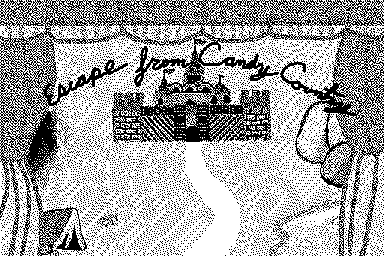 Escape from Candy Country